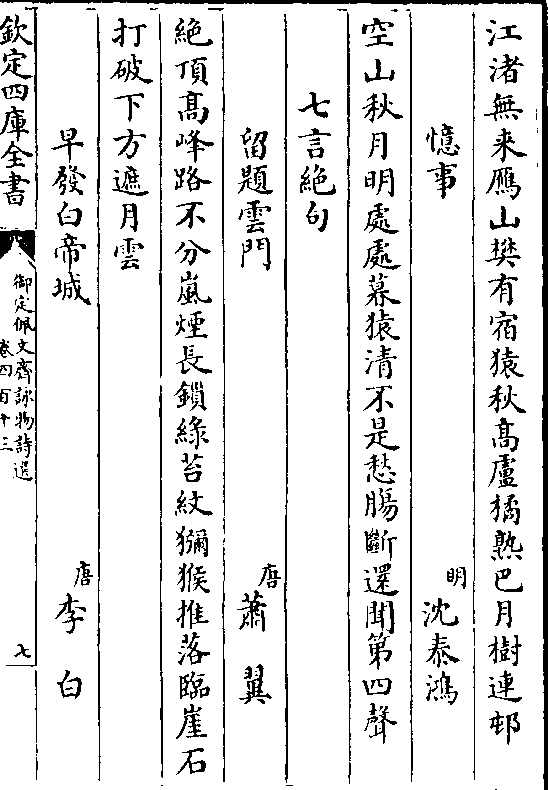 江渚無来鴈山樊有宿猿秋髙盧橘熟巴月樹連邨
憶事
明
沈泰鴻
空山秋月明處處暮猿清不是愁腸斷還聞第四聲
七言絶句
留題雲門
唐
蕭翼
絶頂髙峰路不分嵐煙長鎖綠苔紋獼猴推落臨崖石
打破下方遮月雲
早發白帝城
唐
李白
欽定四庫全書
御定佩文齋詠物詩選
卷四百十三
七